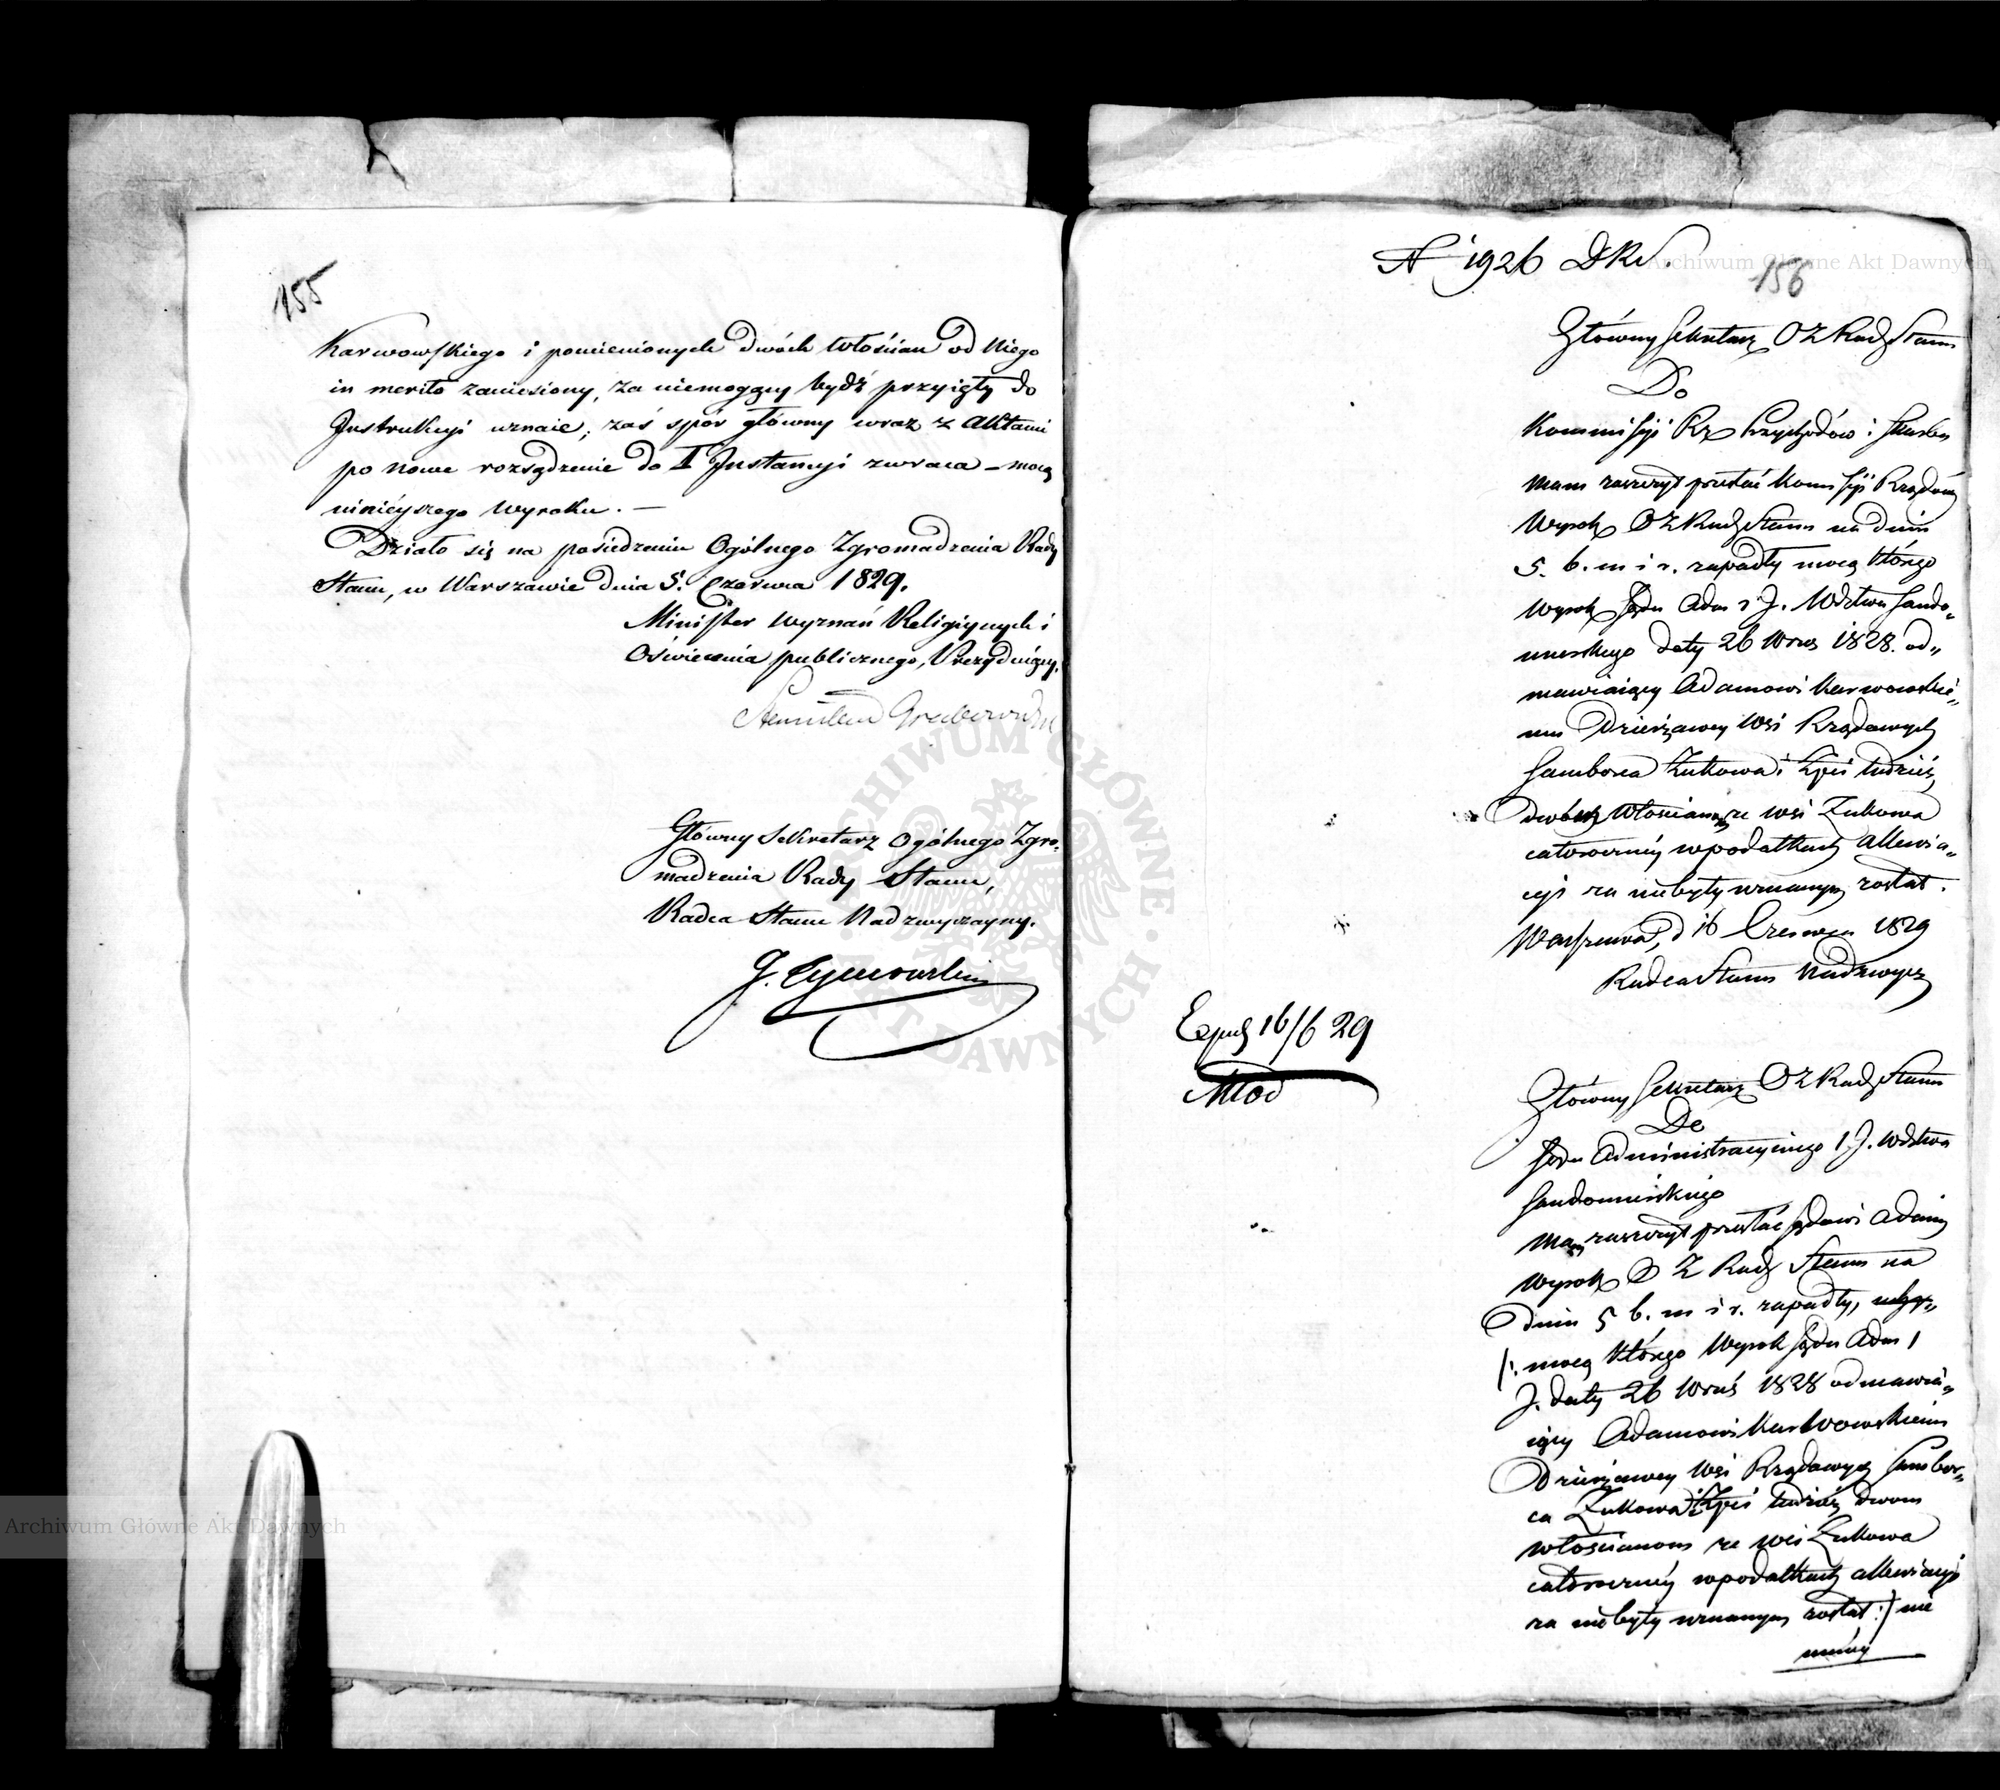 155
Karwowskiego i pomienionych dwóch włościan od niego
in merito zaniesiony, za niemogący bydź przyięty do
Instrukcyi uznaie; zaś spór główny wraz z Aktami
po nowe rozsądzenie do I Instancyi zwraca – mocą
niniéyszego wyroku. —
Działo się na posiedzeniu Ogólnego Zgromadzenia Rady
Stanu, w Warszawie dnia 5. Czerwca 1829.
Minister Wyznań Religiynych i
Oświecenia publicznego, Prezyduiący,
Stanisław Grabowski
Główny Sekretarz Ogólnego Zgro-
madzenia Rady Stanu,
Radca Stanu Nadzwyczayny.
J. Tymowski
N 1926 DKS.
156
Główny Sekretarz OZ Rady Stanu
Do
Kommissyi Rz Przychodów i Skarbu
Mam zaszczyt przesłać Komissyi Rządowey
Wyrok OZ Rady Stanu na dniu
5. b. m i r. zapadły mocą którego
Wyrok Sądu Adm 1 J. Wdztwa Sando-
mirskiego daty 26 Wrześ 1828. od„
mawiaiący Adamowi Karwowskie„
mu Dzierżawcy Wsi Rządowych
Samborca Żukowa i Kępie tudzież
dwóch Włościanom ze wsi Żukowa
całorocznéy w podatkach allewia„
cyi za niebyły uznanym został.
Warszawa, d 16 Czerwca 1829
Radca Stanu Nadzwycz
Exped 16/6 29
Młod
Główny Sekretarz OZ Rady Stanu
Do
Sądu Administracyinego 1 J. Wdztwa
Sandomirskiego
Mam zaszczyt przesłać Sądowi Adminy
Wyrok O Z Rady Stanu na
dniu 5 b. m i r. zapadły,
/: mocą którego Wyrok Sądu Adm 1
J. daty 26 Wrześ 1828 odmawia„
iący Adamowi Karwowskiemu
Dzierżawcy Wsi Rządowych Sambor„
ca Żukowa i Kępie tudzież dwom
włościanom ze wsi Żukowa
całorocznéy w podatkach allewiacyi
za niebyły uznanym został :/ nie
mniéy
Archiwum Główne Akt Dawnych
Archiwum Główne Akt Dawnych
ARCHIWUM GŁÓWNE · AKT DAWNYCH ·